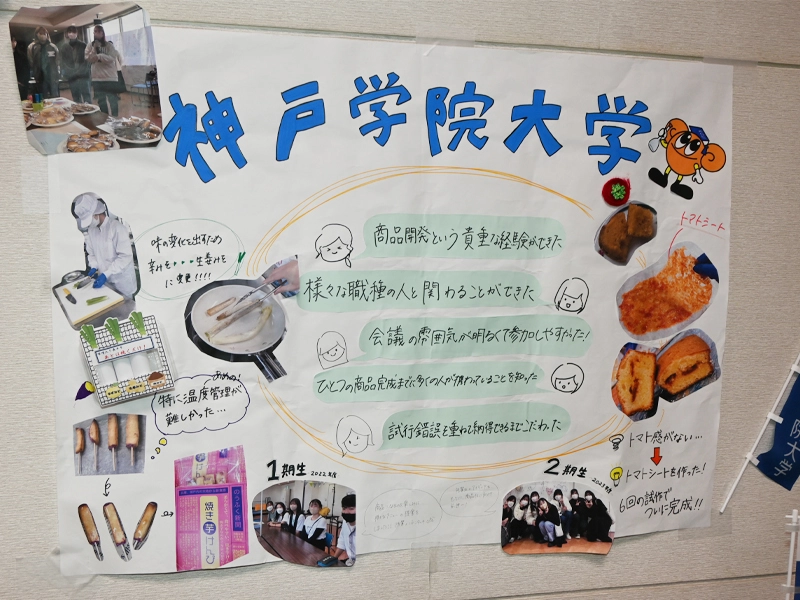 神戸学院大学
味の変化を出すため
辛みを・・・生姜を
に変更!!!!
商品開発という貴重な経験ができた
様々な職種の人と関わることができた
会議の雰囲気が明るくて参加しやすかった!
ひとつの商品完成までに多くの人が携わっていることを知った
試行錯誤を重ねて納得できるまでこだわった
トマトシート
特に温度管理が
難しかった…
焼き芋けんぴ
1期生 2022年度
2期生 2023年度
トマト感がない…
トマトシートを作った!
6回の試作で
ついに完成!!
院大学